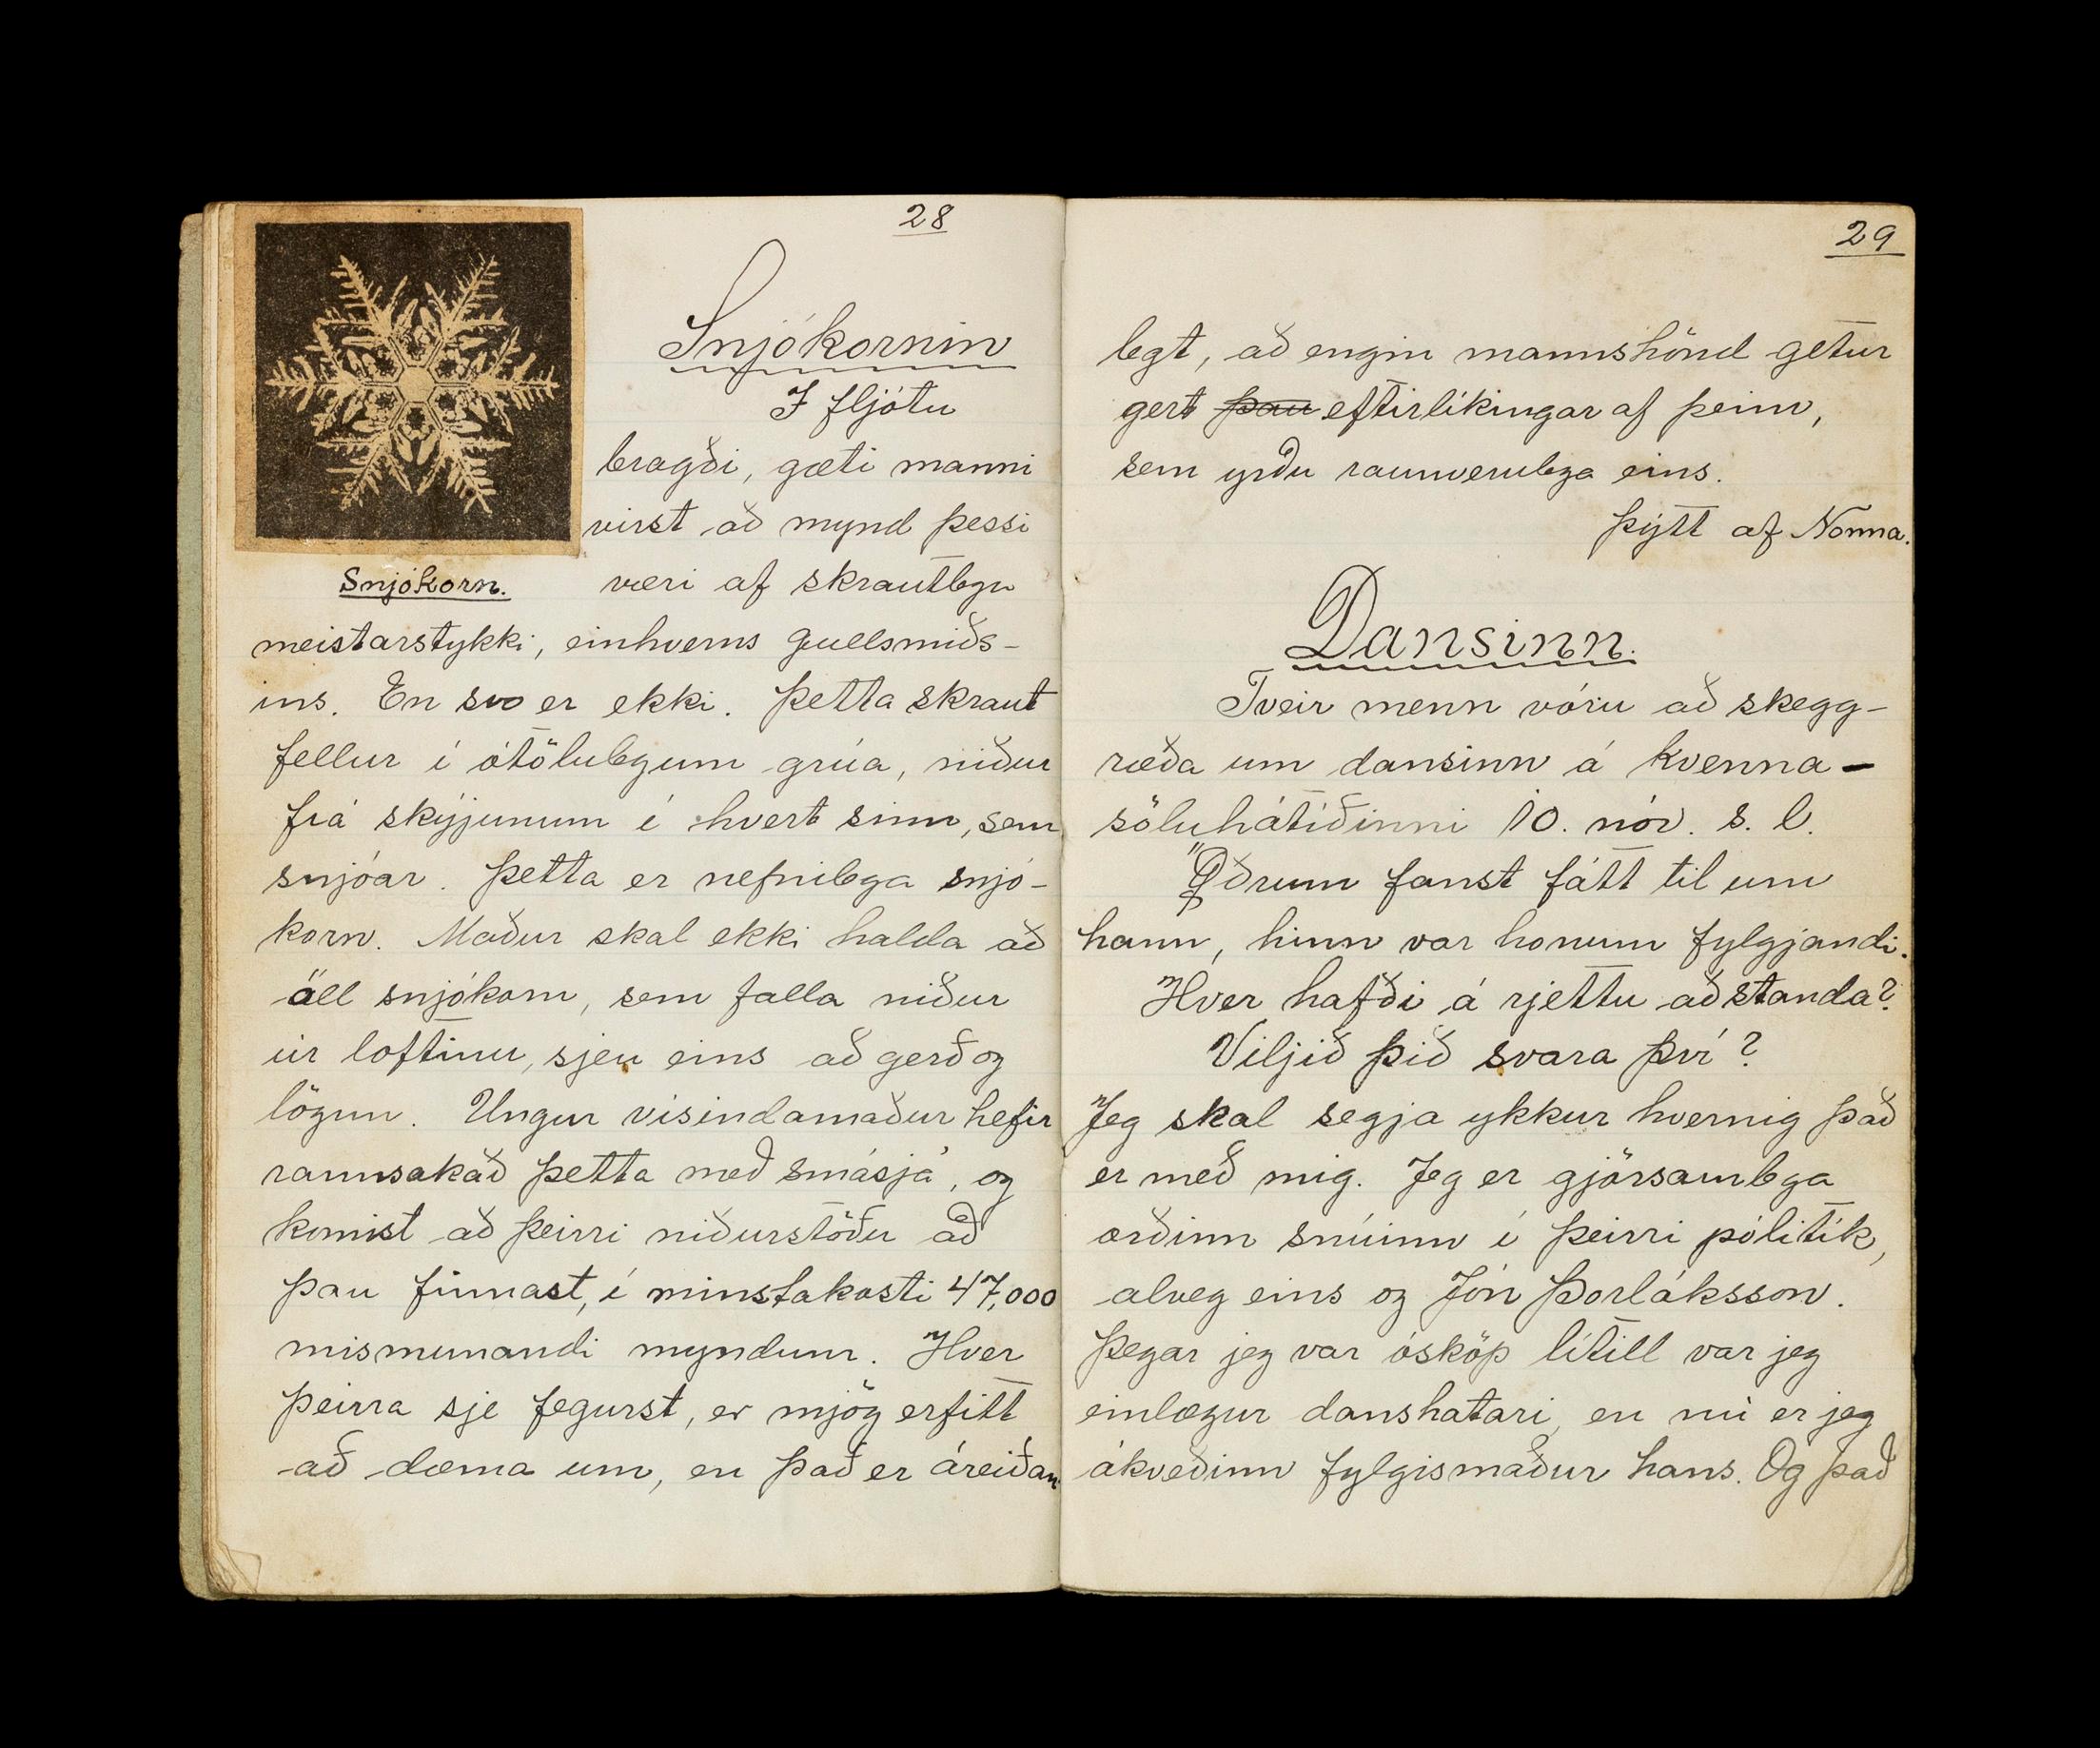 28
Snjókornin
Í fljótu
bragði, gæti manni
virst að mynd þessi
Snjókorn.
væri af skrautlegu
meistarstykki, einhverns gullsmiðs-
ins. En svo er ekki. Þetta skraut
fellur í ótölulegum grúa, niður
frá skýjunum í hvert sinn, sem
snjóar. Þetta er nefnilega snjó-
korn. Maður skal ekki halda að
öll snjókorn, sem falla niður
úr loftinu, sjeu eins að gerð og
lögun. Ungur vísindamaður hefir
rannsakað þetta með smásjá, og
komist að þeirri niðurstöðu að
þau finnast, í minstakosti 47,000
mismunandi myndum. Hver
þeirra sje fegurst, er mjög erfitt
að dæma um, en það er áreiðan
29
legt, að engin mannshönd getur
gert þau eftirlíkingar af þeim,
sem yrðu raunverulega eins.
Þýtt af Nonna.
Dansinn.
Tveir menn vóru að skegg-
ræða um dansinn á kvenna-
söluhátíðinni 10. nóv. s. l.
Öðrum fanst fátt til um
hann, hinn var honum fylgjandi.
Hver hafði á rjettu að standa?
Viljið þið svara því?
Jeg skal segja ykkur hvernig það
er með mig. Jeg er gjörsamlega
orðinn snúinn í þeirri pólitík,
alveg eins og Jón Þorláksson.
Þegar jeg var ósköp lítill var jeg
einlægur danshatari, en nú er jeg
ákveðinn fylgismaður hans. Og það